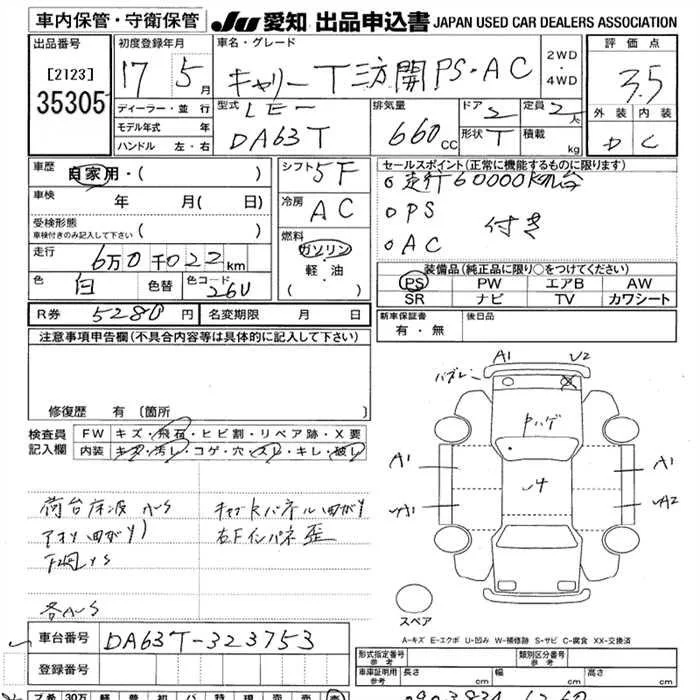 車内保管・守衛保管 JU 愛知 出品申込書 JAPAN USED CAR DEALERS ASSOCIATION
出品番号 初度登録年月 車名・グレード 評価点
[2123] 17 5月 キャリー T 三方開 PS・AC 2WD・4WD 3.5
35305 ディーラー・並行 型式 LE- 排気量 ドア 2 定員 2人 外装 内装
モデル年式 年 DA63T 660cc 形状 T 積載 kg D C
ハンドル 左・右
車歴 自家用・( ) シフト 5F セールスポイント(正常に機能するものに限ります)
車検 年 月( 日) 冷房 AC 走行60000Km台
受検形態 PS 付き
車検付きのみ記入して下さい( ) AC
走行 6万0千022km 燃料 ガソリン・軽油・( ) 装備品(純正品に限り○をつけてください)
色 白 色替 色コード 26U PS PW エアB AW
SR ナビ TV カワシート
R券 5280円 名変期限 月 日 新車保証書 有・無 後日品
注意事項申告欄(不具合内容等は具体的に記入して下さい)
A1 U2
修復歴 有 [箇所
検査員記入欄 FW キズ・飛石・ヒビ割・リペア跡・X要
内装 キズ・汚レ・コゲ・穴・スレ・キレ・破レ
A1 A1
A1 A2
荷台床波 AS キャブKパネル曲がり
アオリ曲がり 右Fインパネ歪
下廻YS
各AS
スペア
A-キズ E-エクボ U-凹み W-補修跡 S-サビ C-腐食 XX-交換済
車台番号 DA63T-323753
登録番号
形式指定番号 参考 類別区分番号 参考
車庫証明用 参考 長さ cm 幅 cm 高さ cm